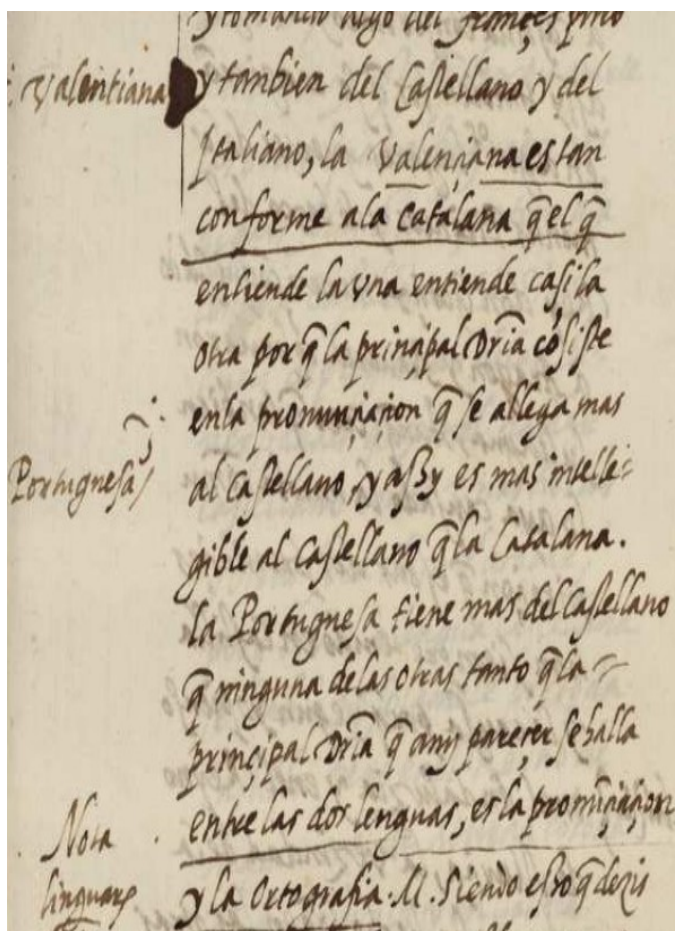 y tomando algo del françes pmo
Valentiana
y tanbien del Castellano y del
Italiano, la Valençiana es tan
conforme ala Catalana q̃ el q̃
entiende la vna entiende casi la
otra por q̃ la prinçipal Dr̃ia cõsiste
enla pronunçiaçion q̃ se allega mas
Portuguesa
al Castellano, y aßy es mas intelle=
gible al Castellano q̃ la Catalana.
la Portuguesa tiene mas del Castellano
q̃ ninguna delas otras tanto q̃ la
prinçipal Dr̃ia q̃ a mj pareçer se halla
entre las dos lenguas, es la pronũçiaçion
Nota
linguarũ
y la Ortografia. M. Siendo esto q̃ dezis